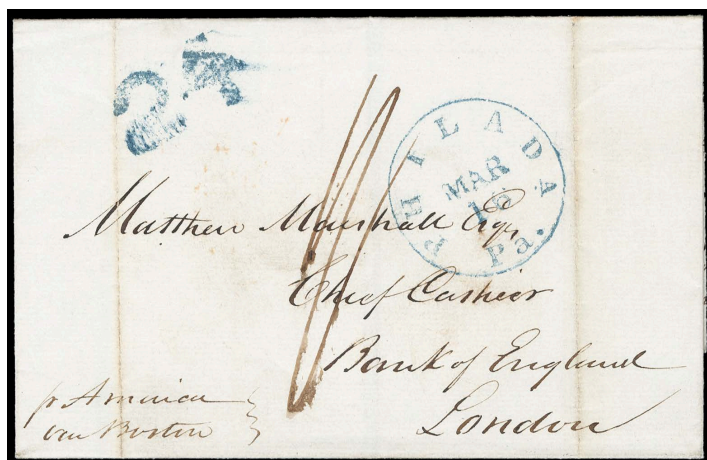 24
PHILADA
MAR
16
Pa.
Matthew Marshall Esqr
Chief Cashier
Bank of England
London
pr America
via Boston